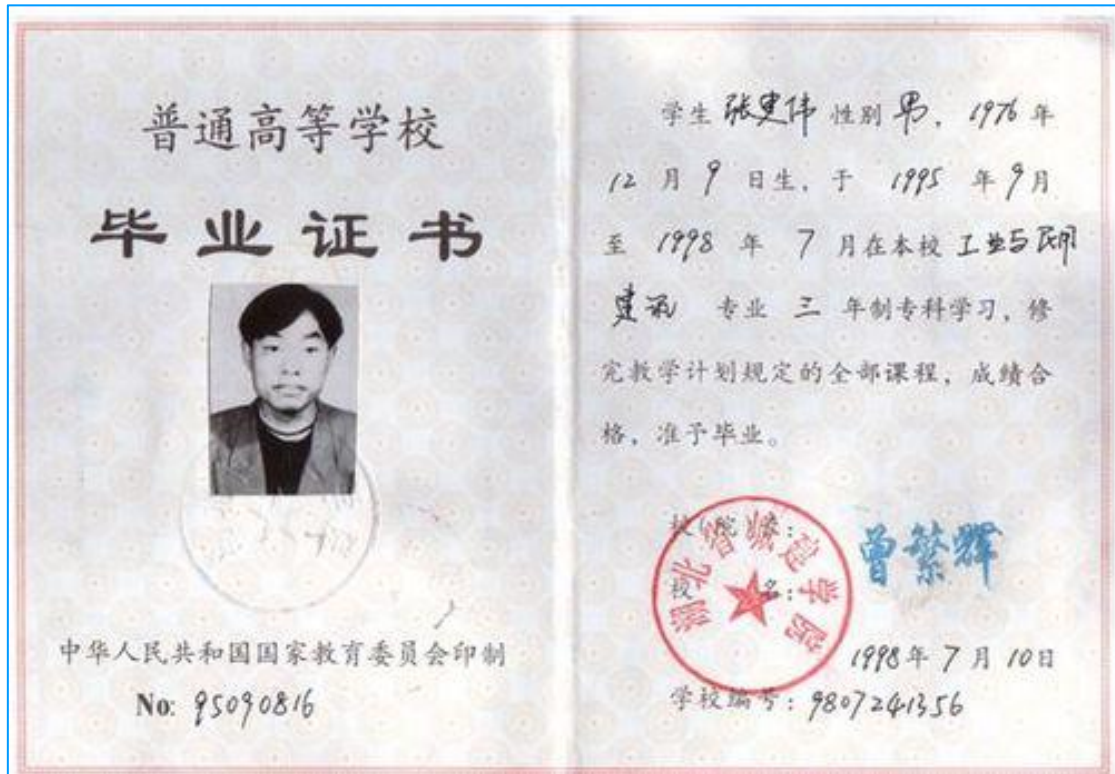 普通高等学校
毕业证书
中华人民共和国国家教育委员会印制
No: 95090816
学生 张建伟 性别 男, 1976 年
12 月 9 日生, 于 1995 年 9 月
至 1998 年 7 月在本校 工业与民用
建筑 专业 三 年制专科学习, 修
完教学计划规定的全部课程, 成绩合
格, 准予毕业。
校(院)长: 曾繁辉
校 名:
湖北省城建学院
1998年 7 月 10日
学校编号: 9807241356